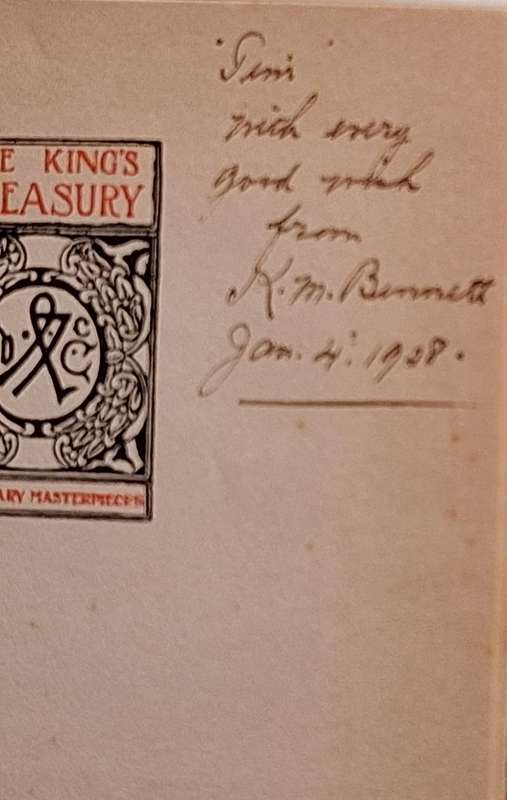 E KING'S
EASURY
ARY MASTERPIECES
with every
good wish
from
K. M. Bennett
Jan. 4. 1928.